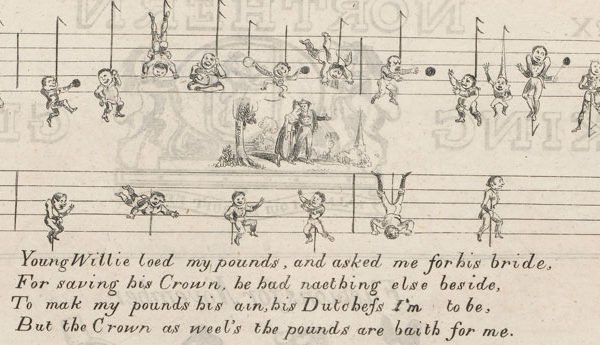 Young Willie loed my pounds, and asked me for his bride,
For saving his Crown, he had naething else beside,
To mak my pounds his ain, his Dutcheſs I'm to be,
But the Crown as weel's the pounds are baith for me.